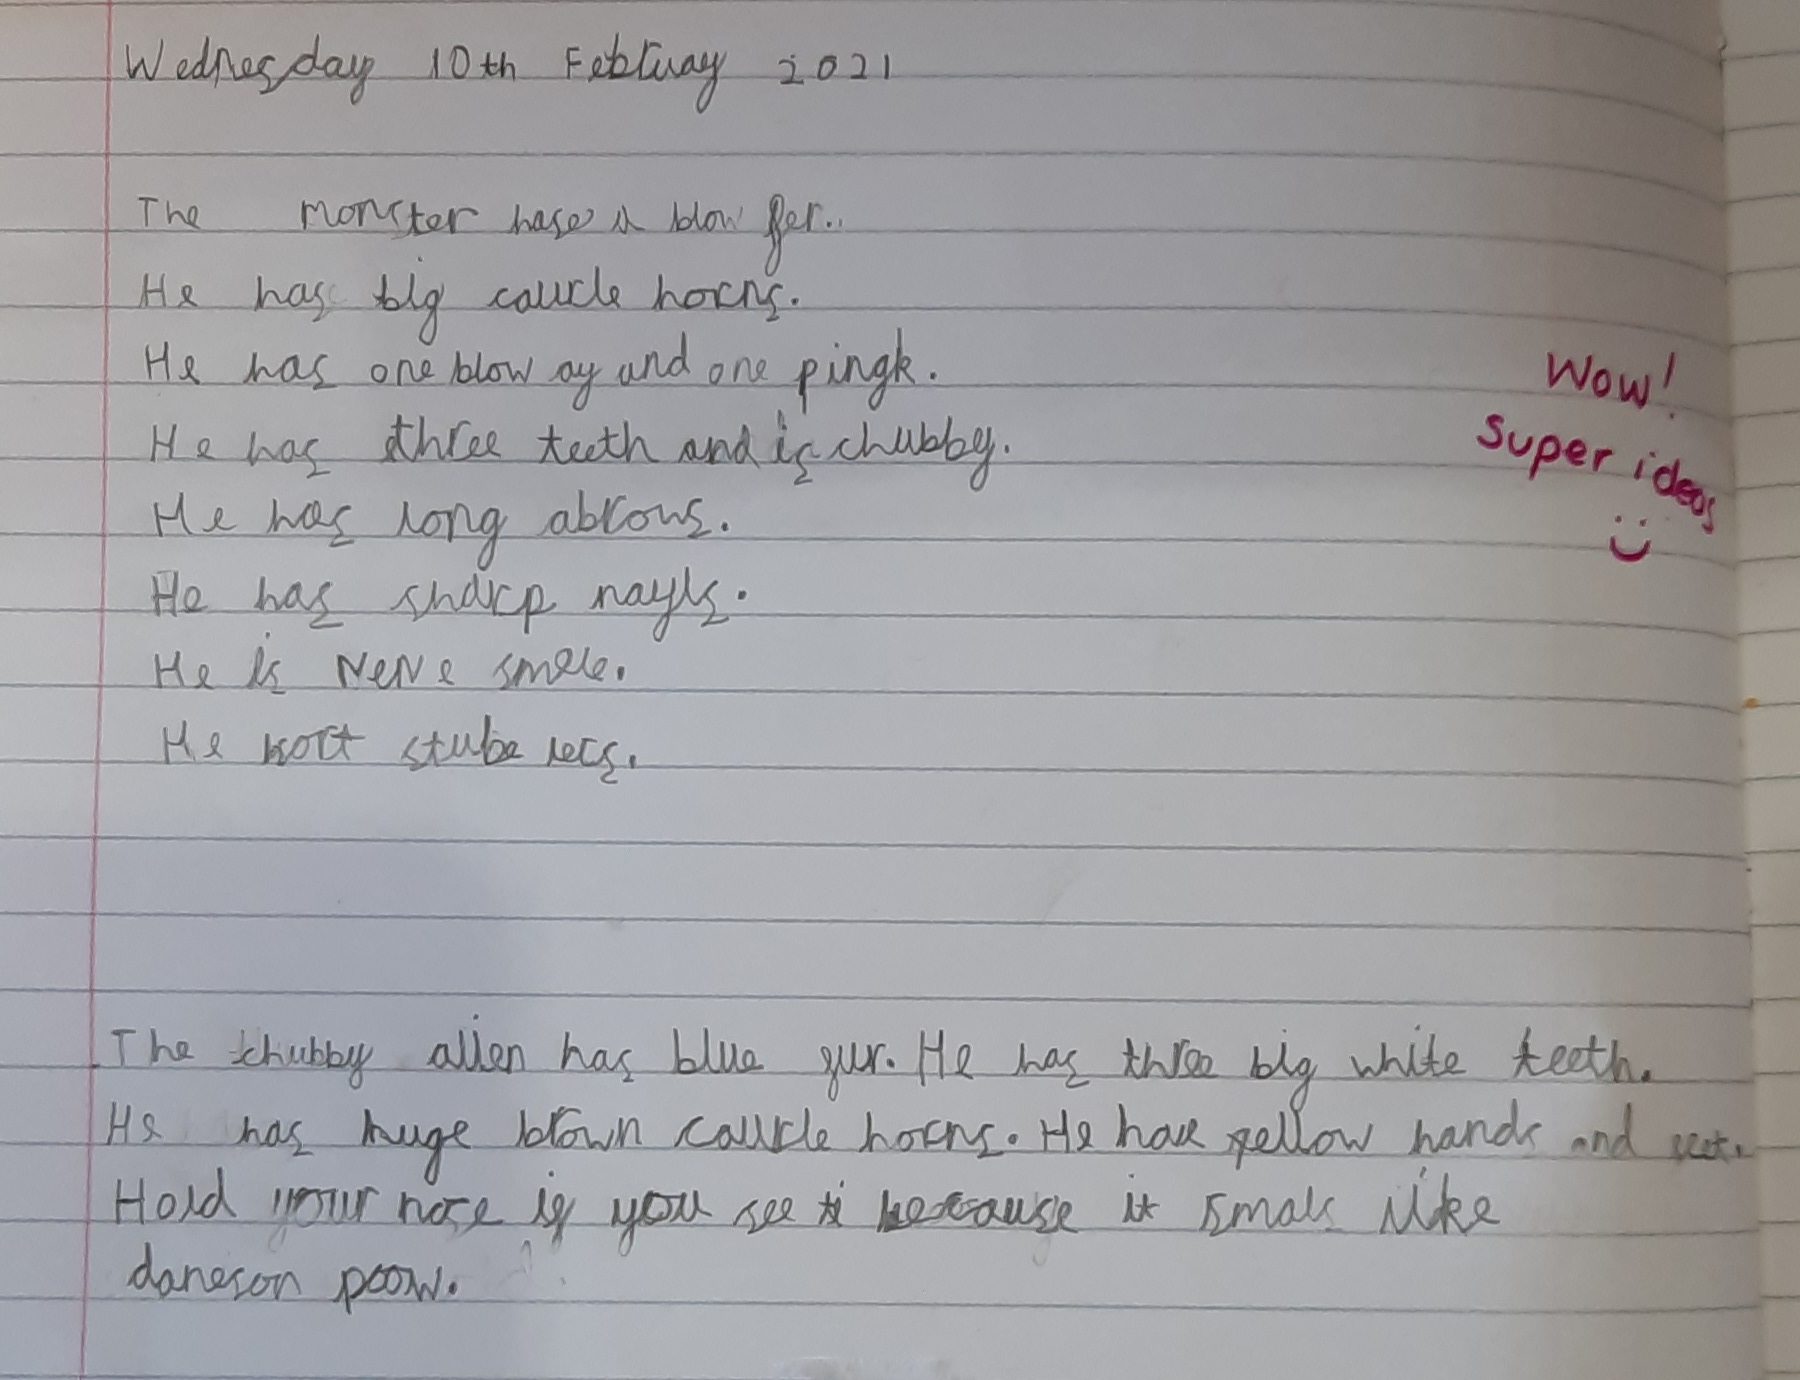 Wednesday 10th February 2021
The monster hase a blow fer..
He has big caucle horns.
He has one blow ay and one pingk.
He has three teeth and is chubby.
He has long abrows.
He has sharp nayls.
He is smele.
He stube legs.
Wow!
Super ideas
The chubby alien has blue fur. He has three big white teeth.
He has huge brown caurcle horns. He have yellow hands and
Hold your nose if you see it because it smals like
daneson poow.